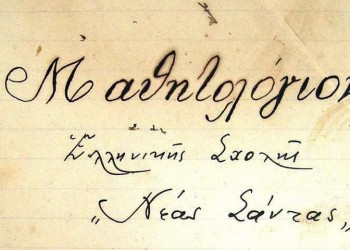 Μαθητολόγιον
Ἑλληνικῆς Σχολῆς
„Νέας Σάντας„